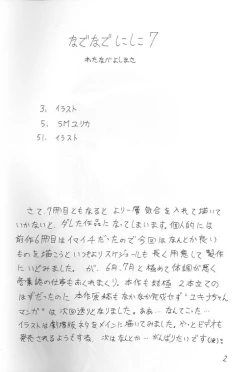 なでなでにしこ7
わたなべよしまさ
3. イラスト
5. SMユリカ
51. イラスト
さて、7冊目ともなると より一層 気合を入れて描いて
いかないと、ダレた作品に なってしまいます。個人的には
前作6冊目は イマイチだったので今回はなんとか良い
ものを描こうと いつもよりスケジュールも 長く用意して 製作
にいどみました。 が、6月、7月と 極めて体調が悪く
営業誌の仕事もあくれまくり、本作も 結局 2本立ての
はずだったのと 本作原稿もなかなか完成せず "ユキナちゃん
マンガ" は 次回送りとなりました。ああ… なんてこった…
イラストは劇場版ネタをメインに描いてみました。やっとビデオも
発売されるようもすね 次はなんとか… がんばりたいです
2